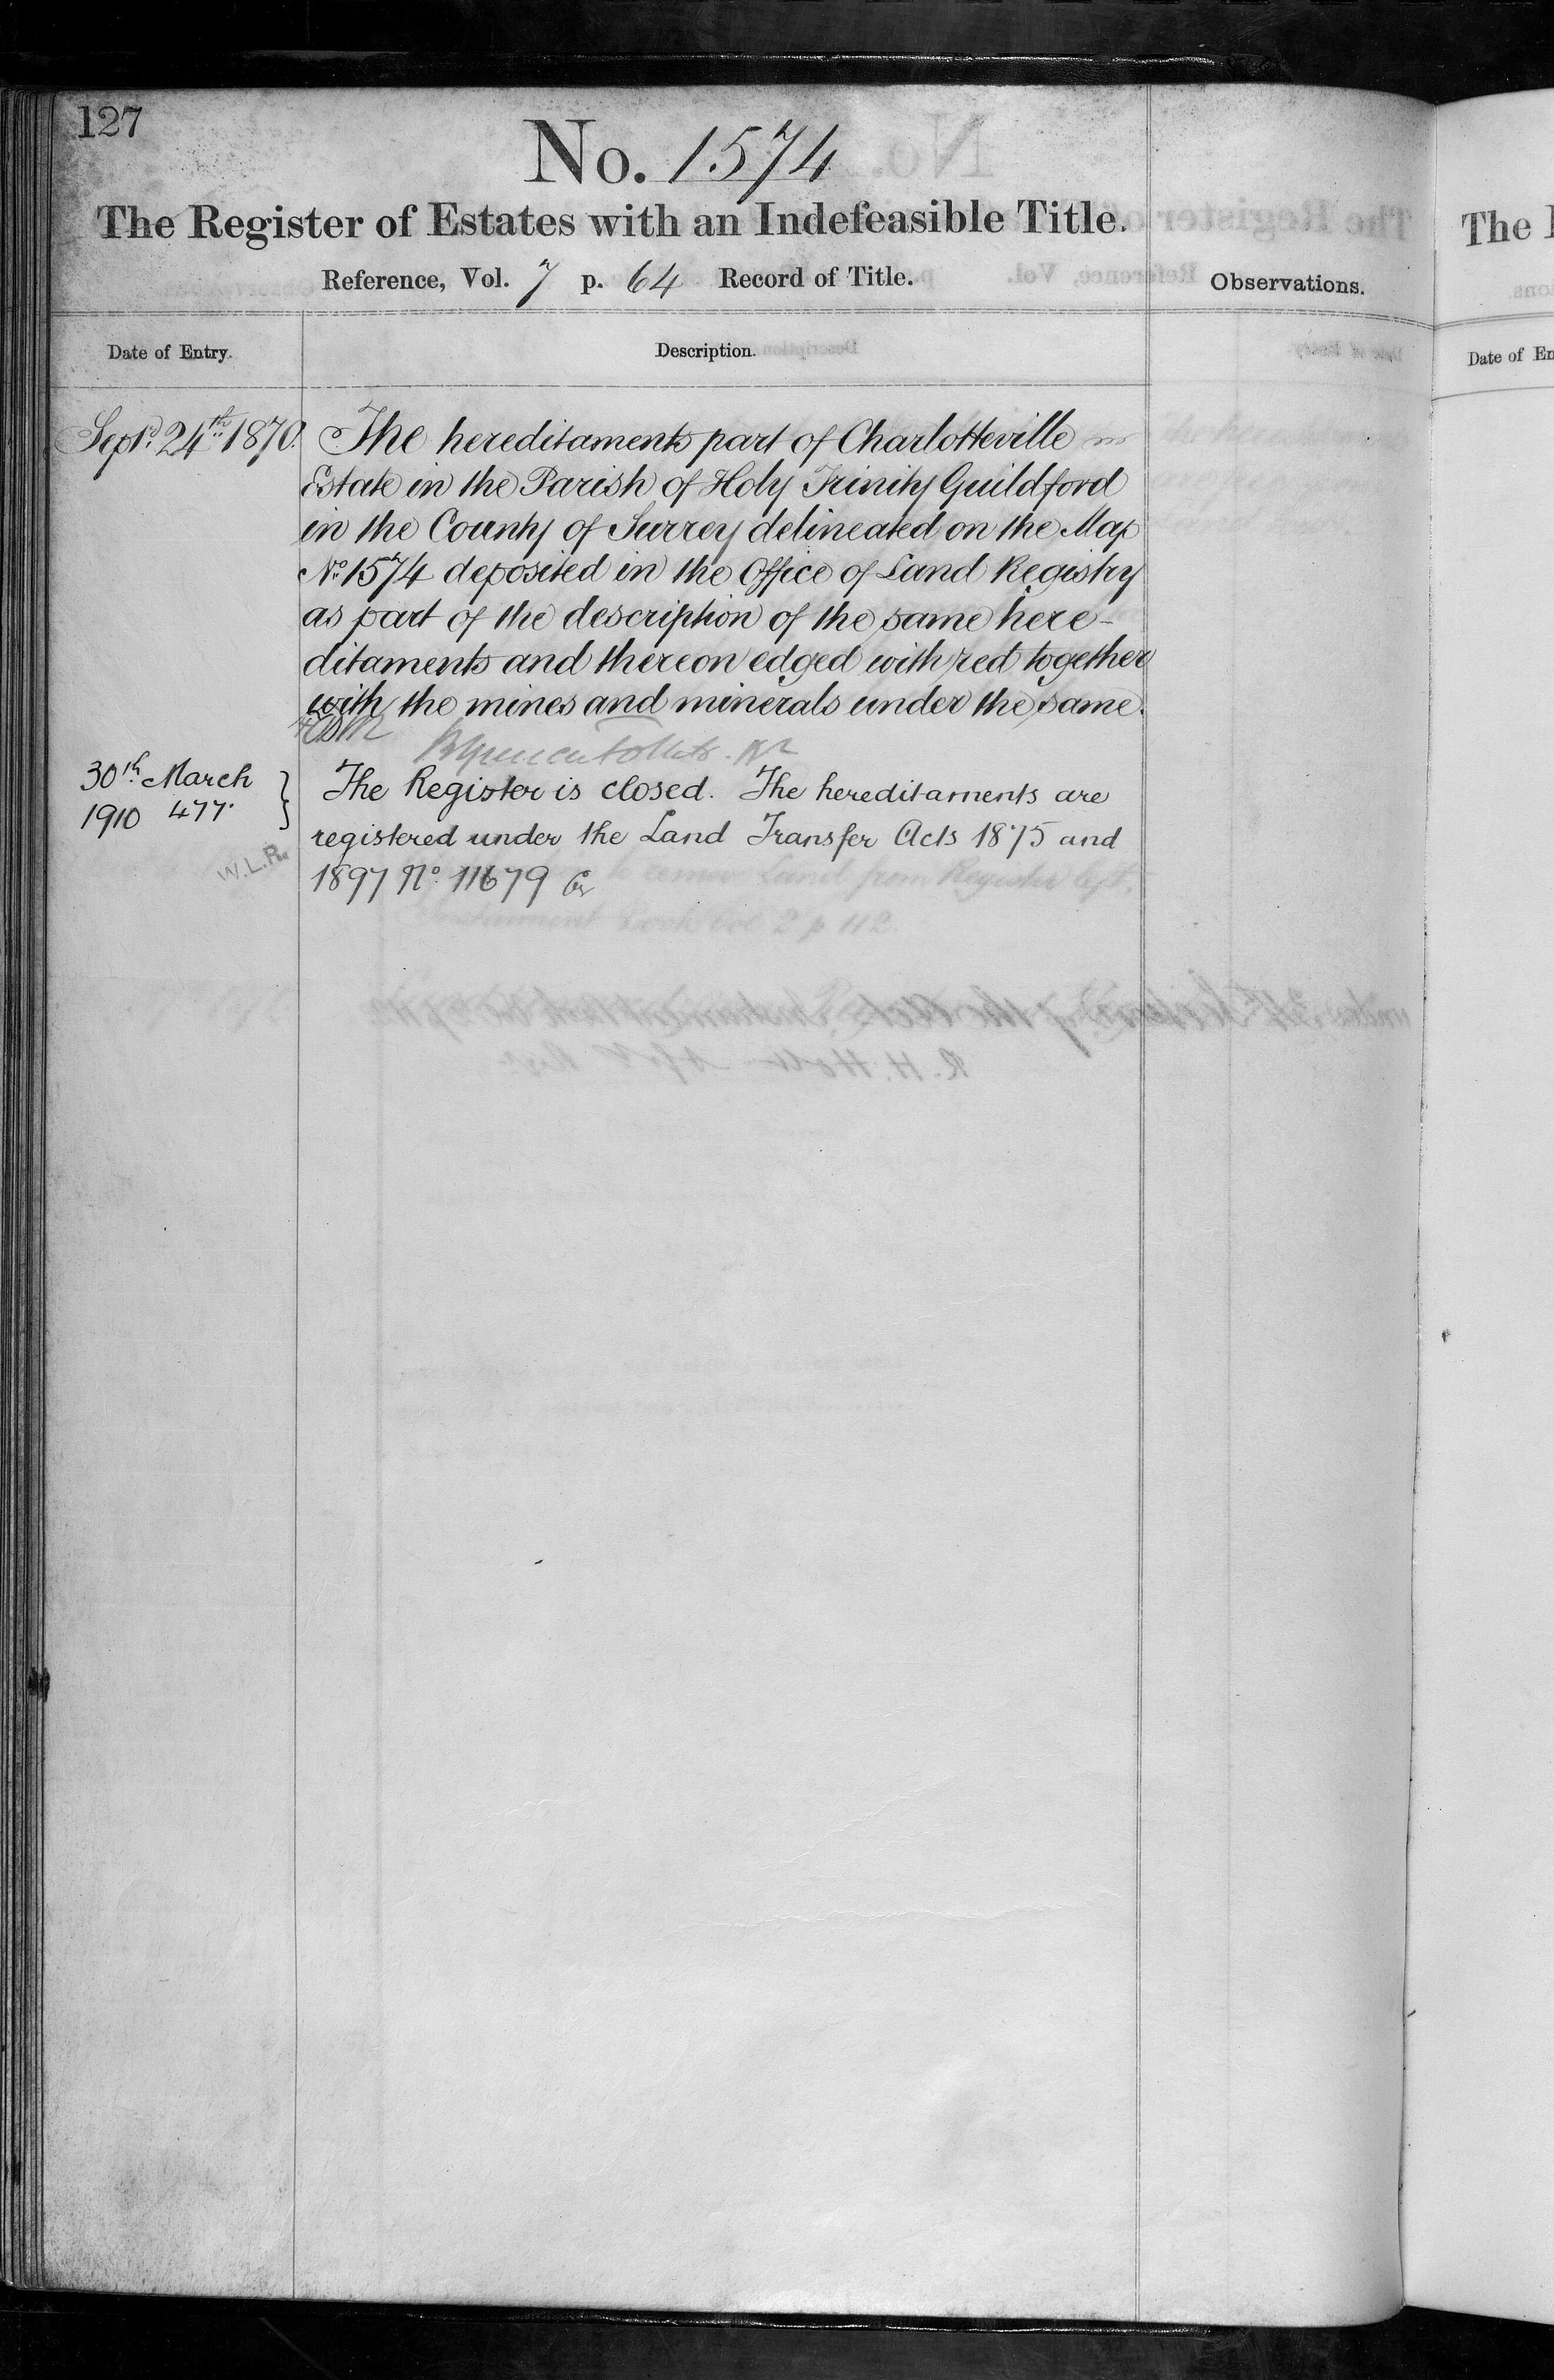 127
No. 1574
The Register of Estates with an Indefeasible Title.
Reference, Vol. 7 p. 64 Record of Title.
Observations.
Date of Entry.
Description.
Sept.r 24th 1870.
The hereditaments part of Charlotteville
Estate in the Parish of Holy Trinity Guildford
in the County of Surrey delineated on the Map
No. 1574 deposited in the Office of Land Registry
as part of the description of the same here-
ditaments and thereon edged with red together
with the mines and minerals under the same.
30th March
1910 477.
W.L.R.
The Register is closed. The hereditaments are
registered under the Land Transfer Acts 1875 and
1897 No. 11679
Land from Register left.
Instrument Book Vol 2 p 112.
The
Date of En